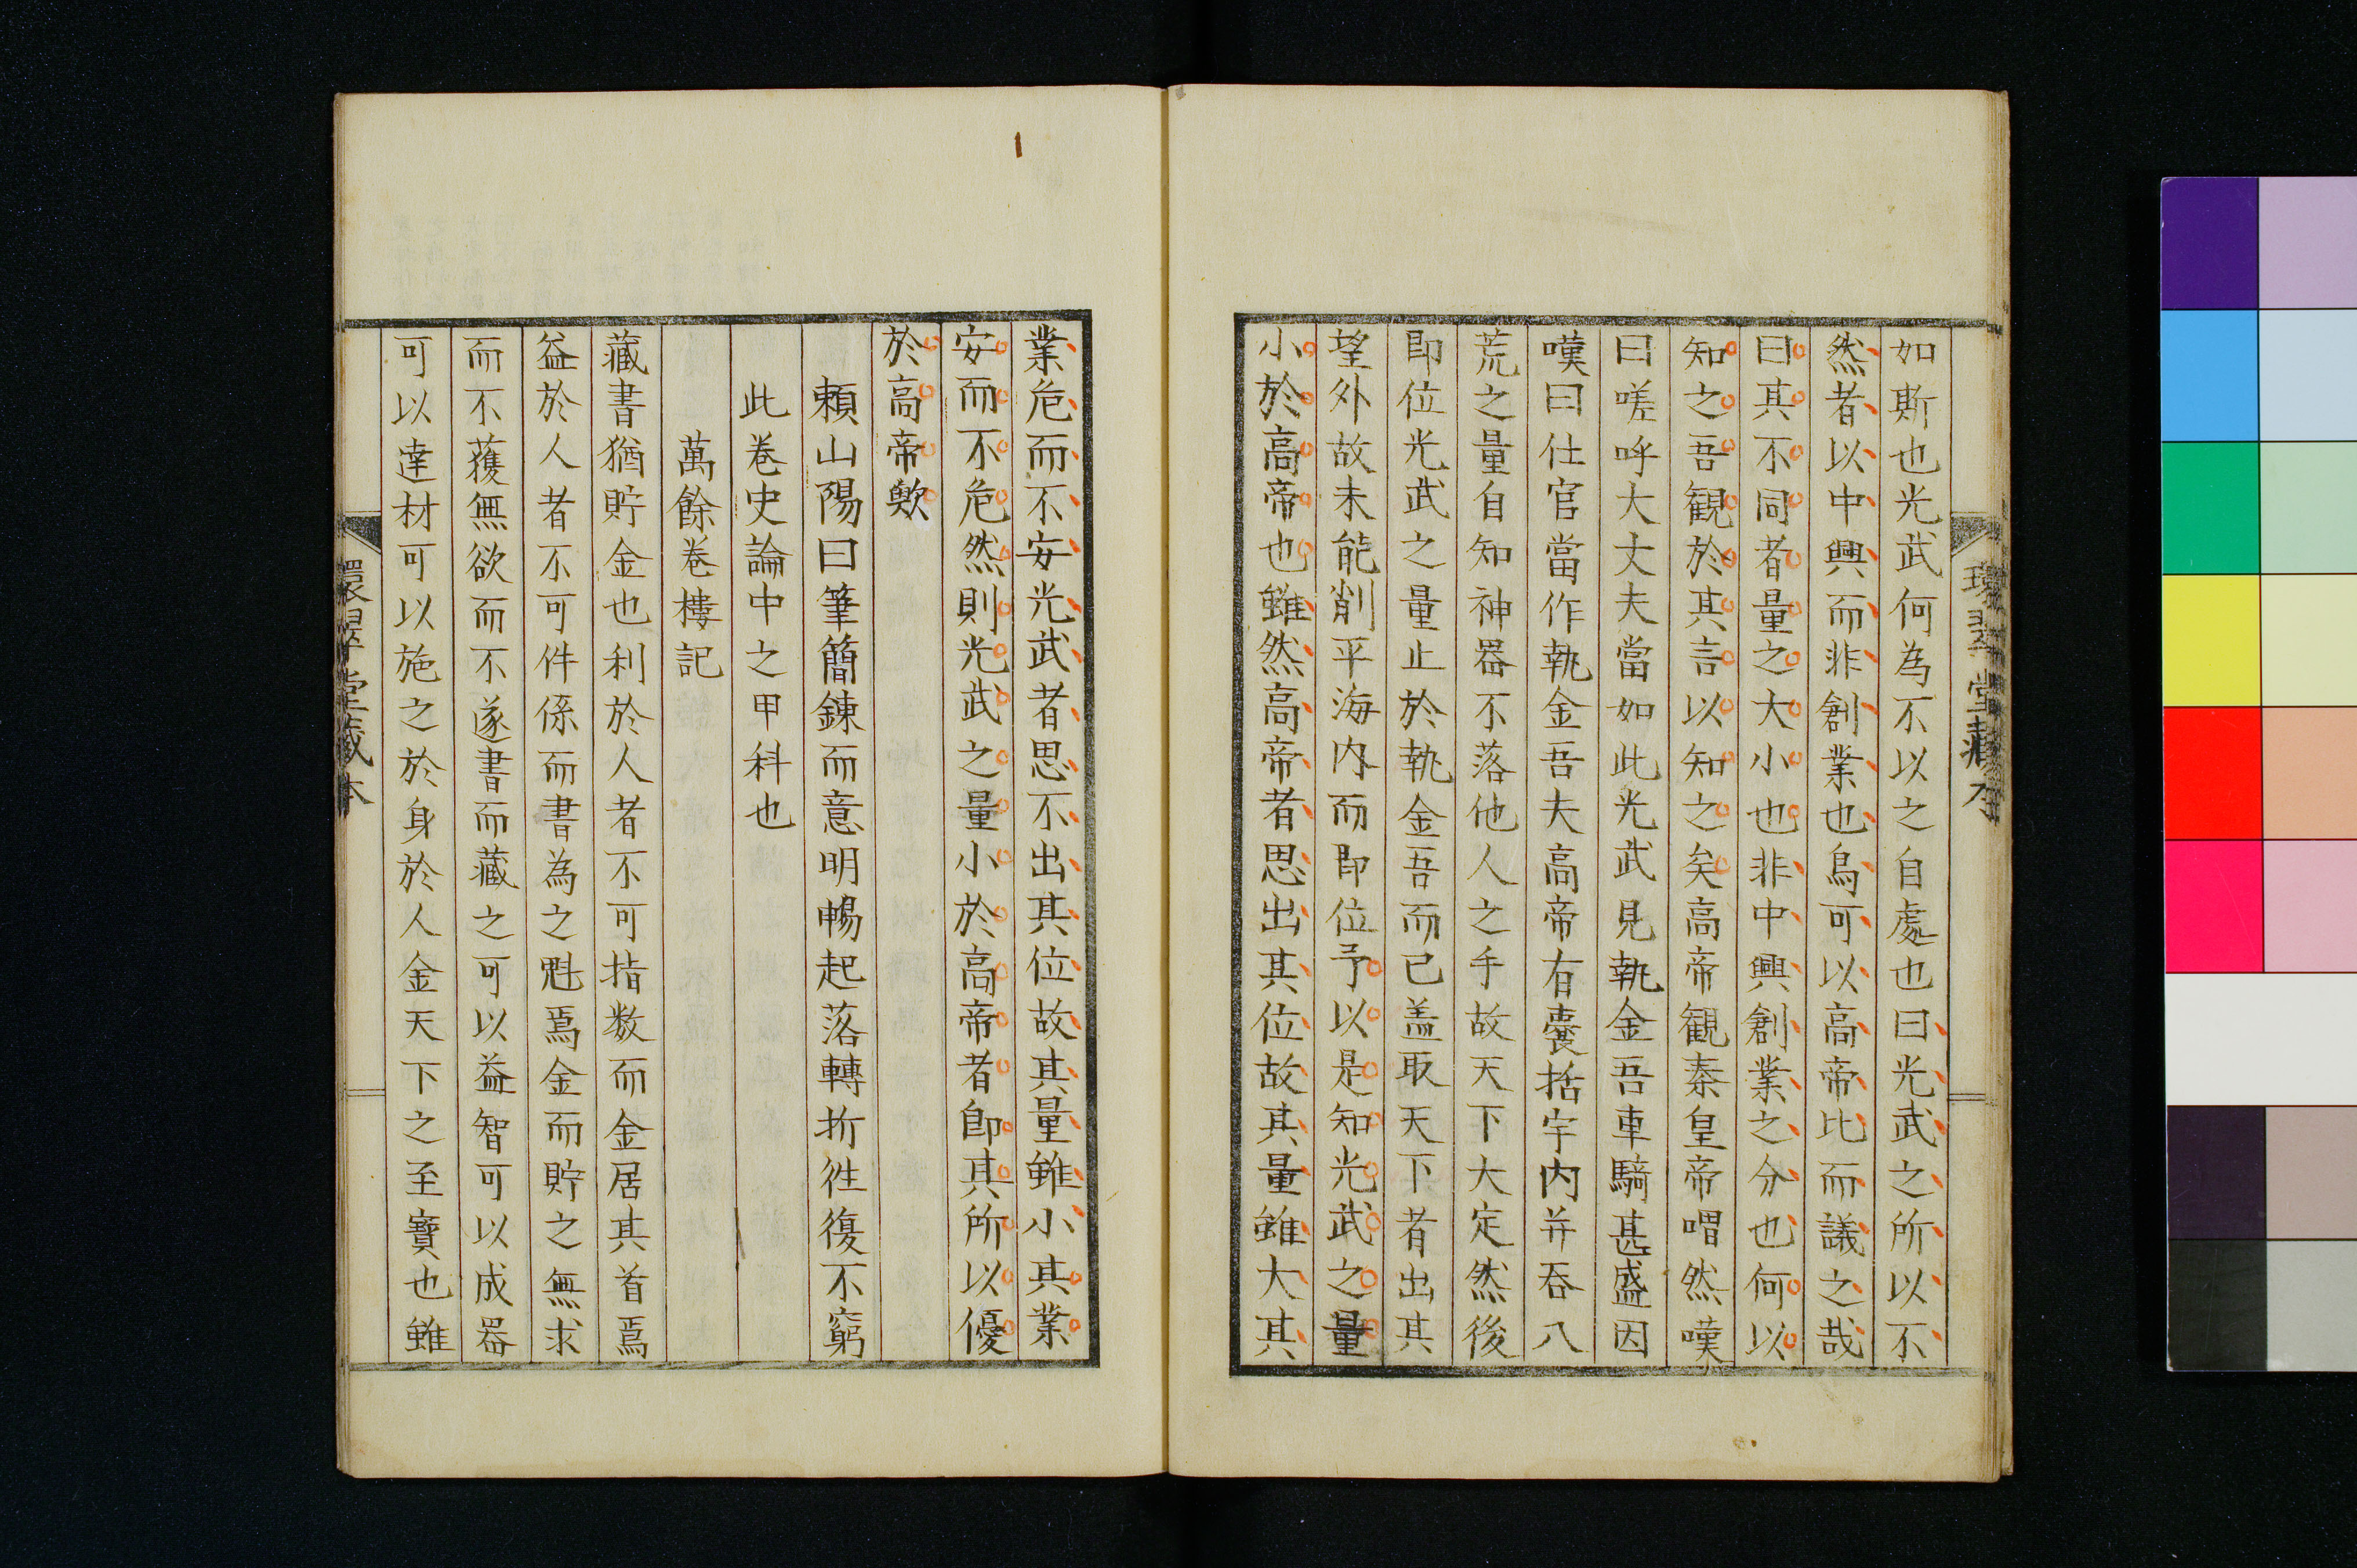 如斯也光武何為不以之自處也曰光武之所以不
然者以中興而非創業也烏可以高帝比而議之哉
曰其不同者量之大小也非中興創業之分也何以
知之吾観於其言以知之矣高帝観秦皇帝喟然嘆
曰嗟呼大丈夫當如此光武見執金吾車騎甚盛因
嘆曰仕官當作執金吾夫高帝有囊括宇内并吞八
荒之量自知神器不落他人之手故天下大定然後
即位光武之量止於執金吾而已盖取天下者出其
望外故未能削平海内而即位予以是知光武之量
小於高帝也雖然高帝者思出其位故其量雖大其
業危而不安光武者思不出其位故其量雖小其業
安而不危然則光武之量小於高帝者即其所以優
於高帝歟
頼山陽曰筆簡錬而意明暢起落轉折徃復不窮
此巻史論中之甲科也
萬餘巻樓記
藏書猶貯金也利於人者不可指数而金居其首焉
益於人者不可件係而書為之魁焉金而貯之無求
而不獲無欲而不遂書而藏之可以益智可以成器
可以達材可以施之於身於人金天下之至寶也雖
環翠堂藏本
環翠堂藏本